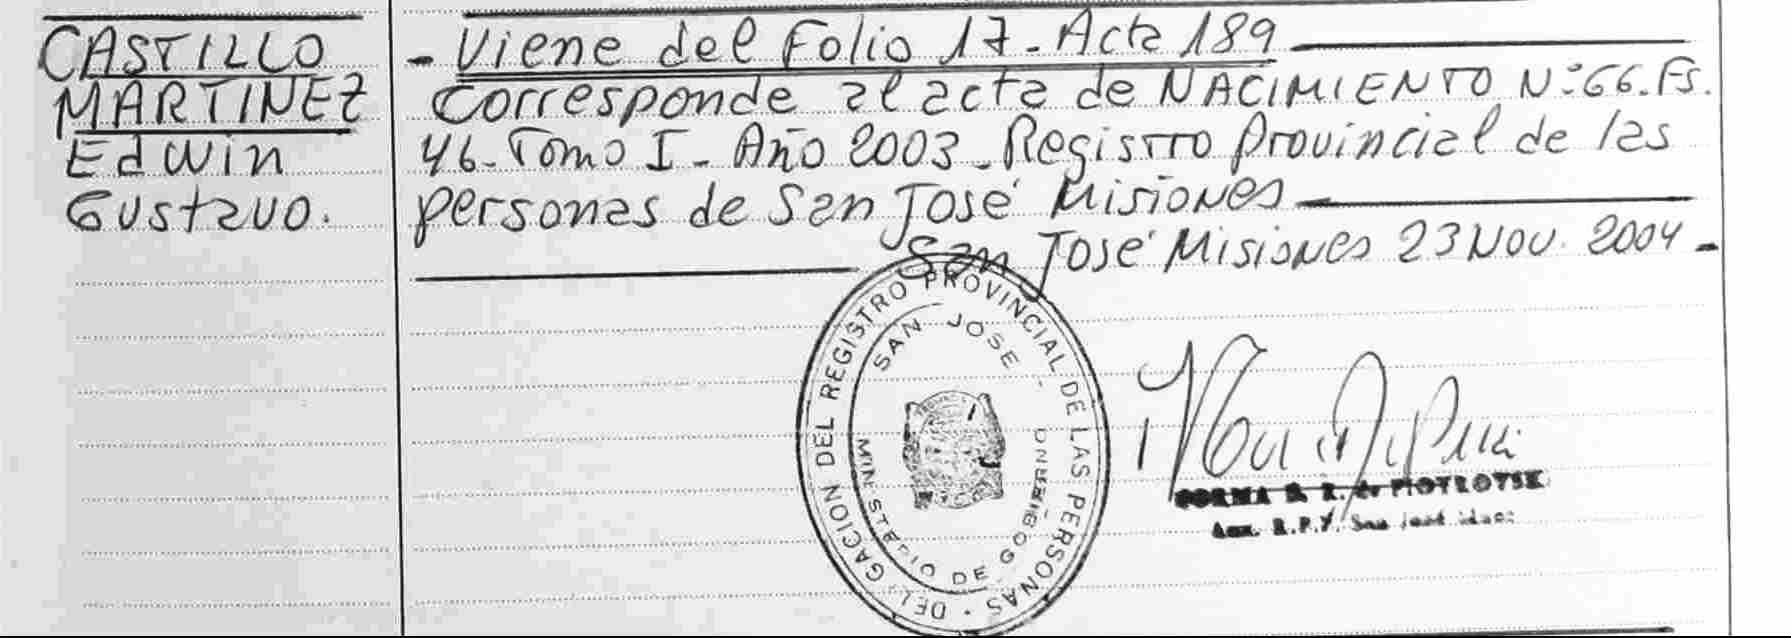 CASTILLO
MARTINEZ
Edwin
Gustavo.
- Viene del Folio 17 - Acta 189
Corresponde al acta de NACIMIENTO N° 66. Fs.
46 - Tomo I - Año 2003 - Registro provincial de las
personas de San José Misiones
San José Misiones 23 Nov. 2004 -
DELEGACION DEL REGISTRO PROVINCIAL DE LAS PERSONAS
SAN JOSE
MINISTERIO DE GOBIERNO
NORMA
de PIOTROVSK
Aux. R.P.P. San José